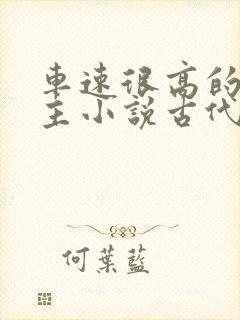 車速很高的
主小說古代
何葉藍